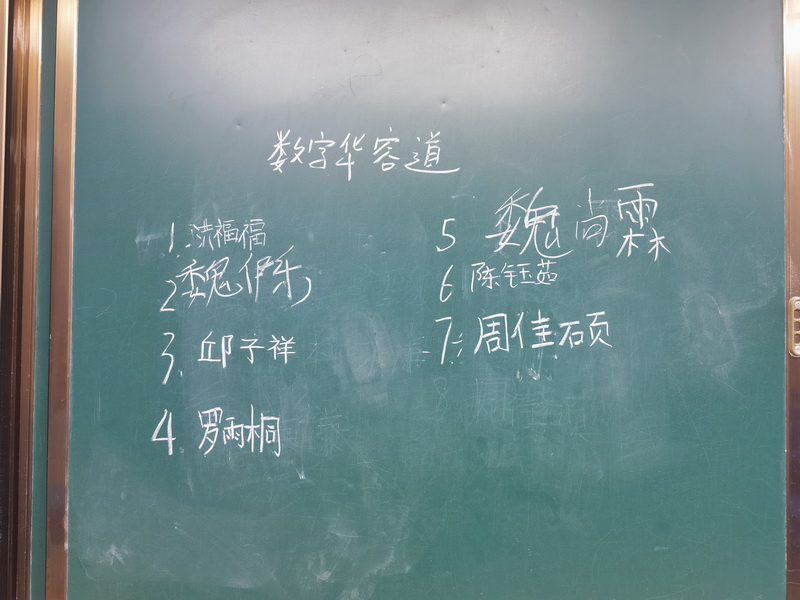 数字华容道
1. 洪福福
2 魏伊乐
3. 邱子祥
4. 罗雨桐
5 魏尚霖
6 陈钰茹
7. 周佳硕